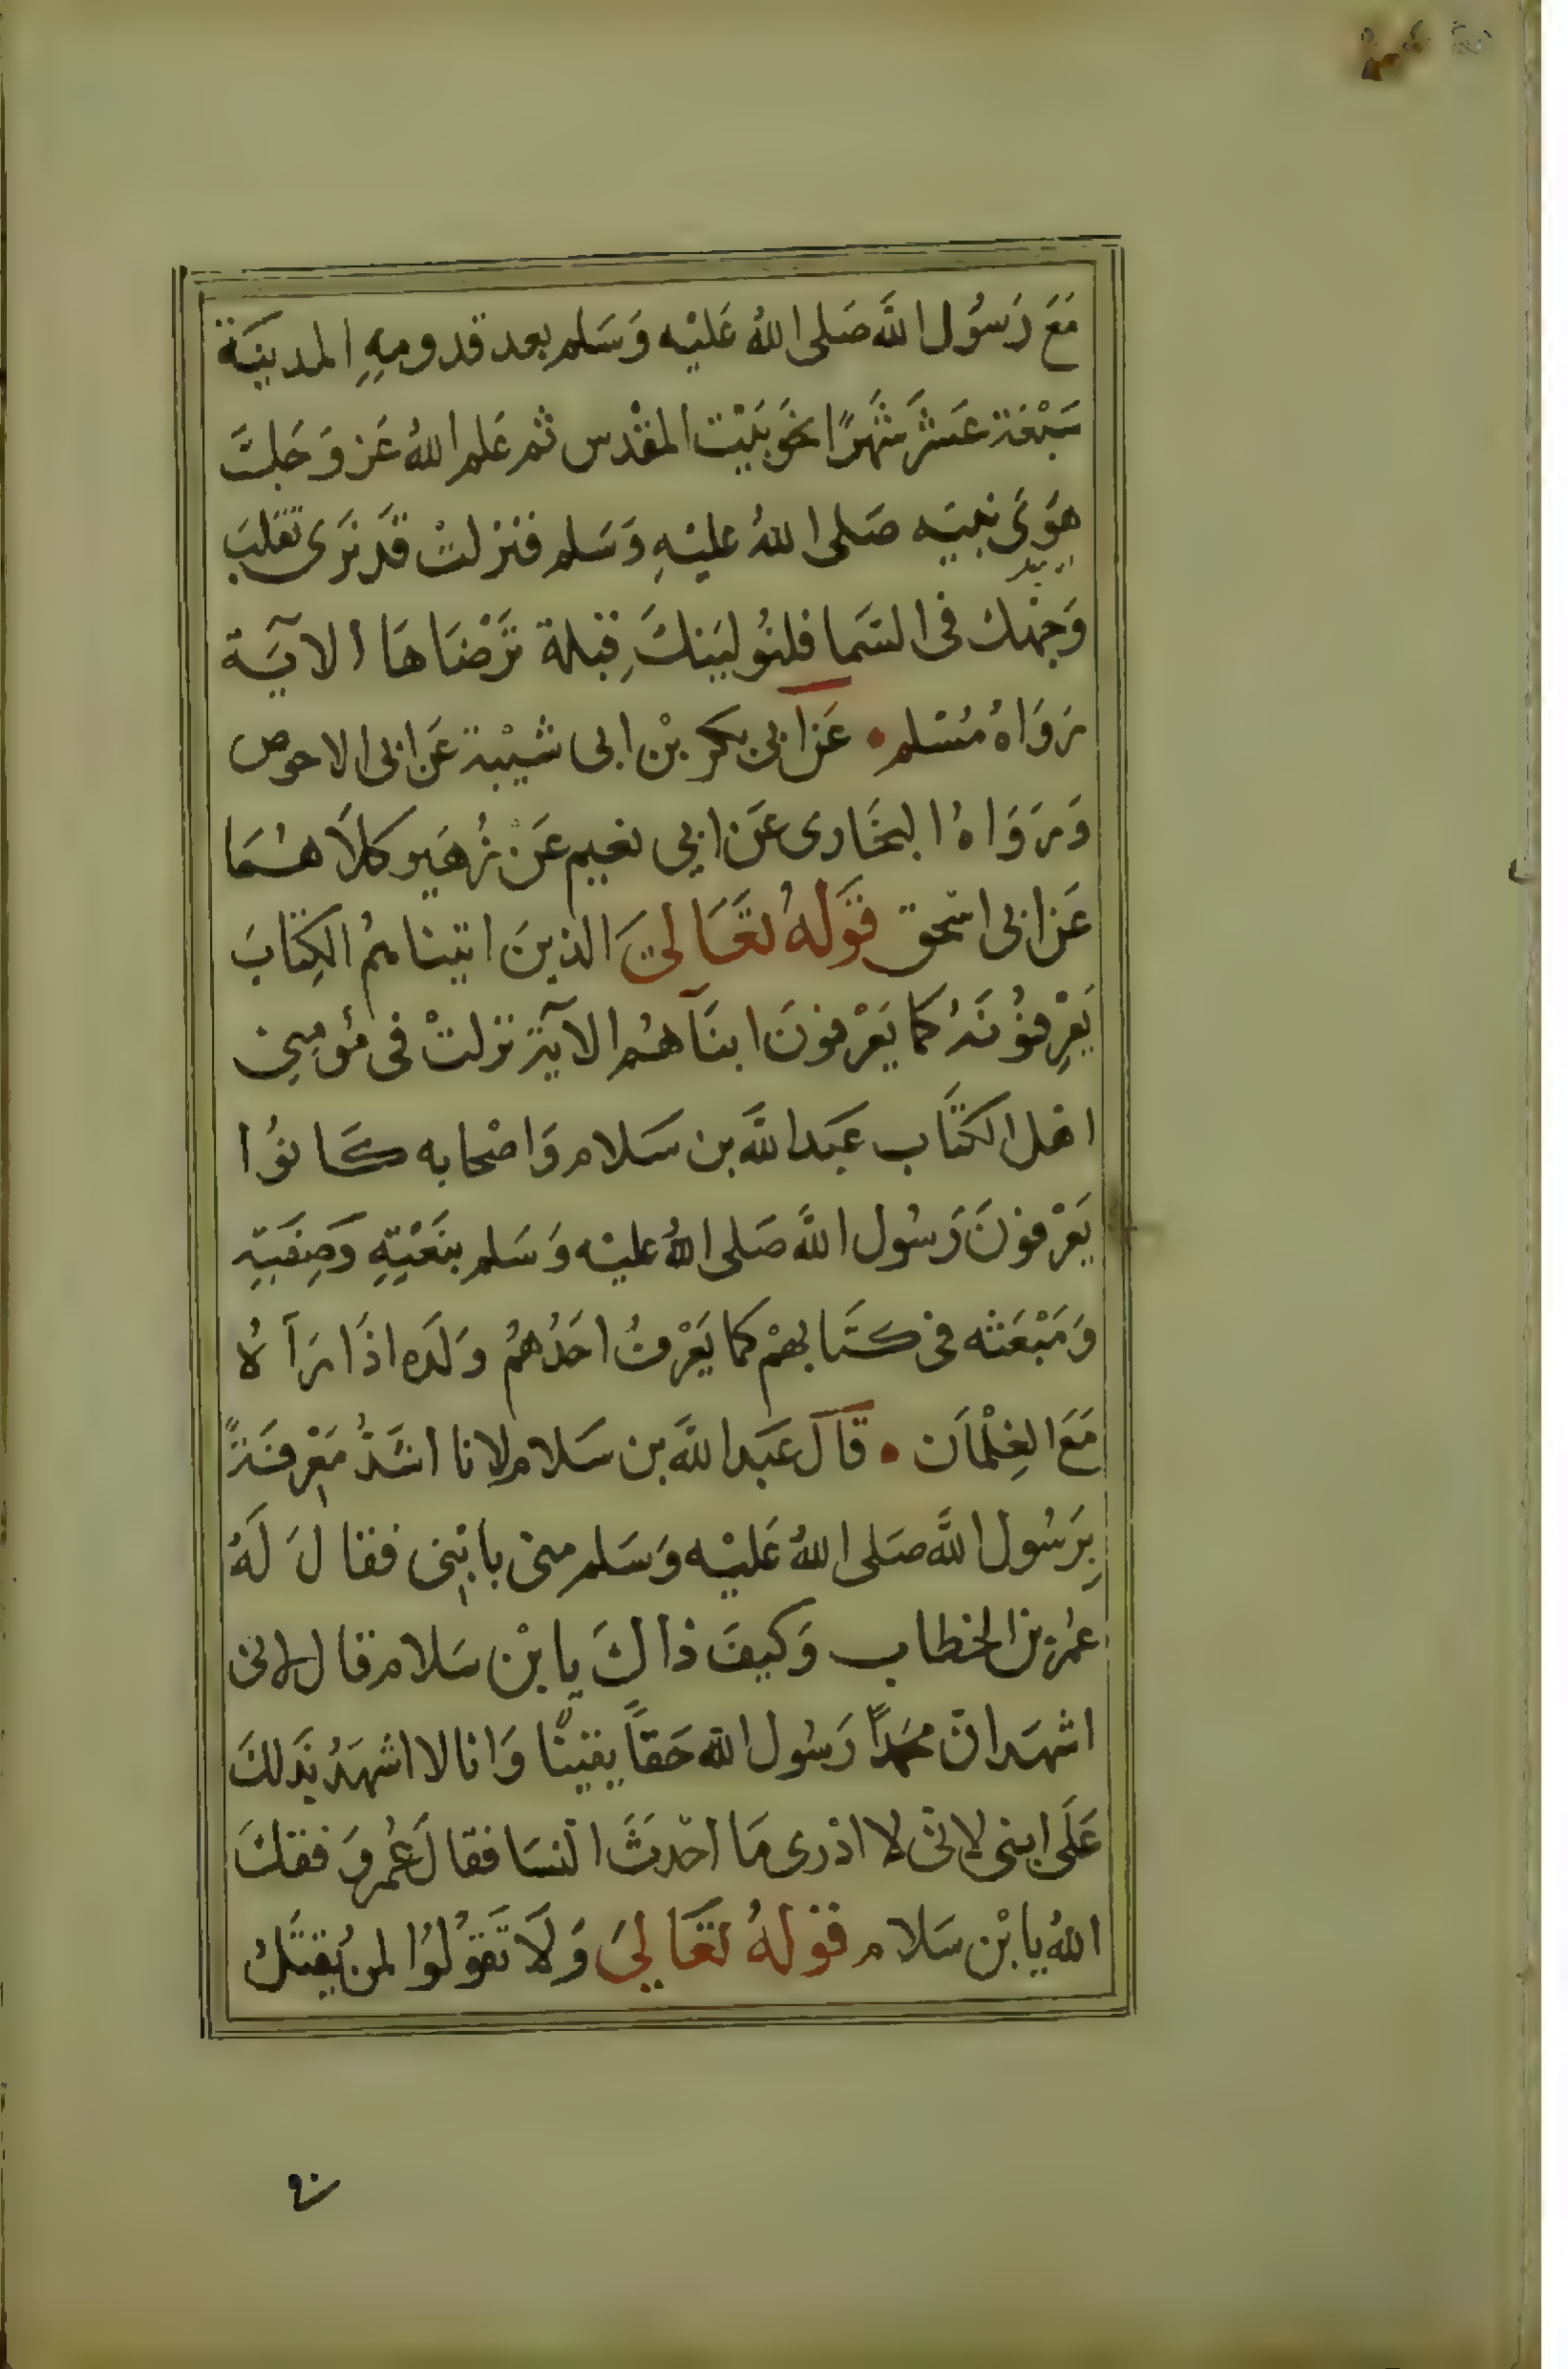 مَعَ رَسُول اللَّه صَلى اللهُ عَليْه وَسَلم بعد قدومِهِ المدينَة
سَبْعَة عَشَرَ شَهرًا نحَوَ بَيْت المقْدس ثم عَلم اللهُ عَز وَجَلَّ
هَوَى نبيه صَلى اللهُ عليْهِ وَسَلم فنزلتْ قَد نَرَى تقلبَ
وَجْهك فى السَما فلنُوليَنكَ قِبلة تَرْضَاهَا الآيَة
رَوَاهُ مُسْلم • عَن ابى بكر بْن ابى شيْبة عَن ابى الاحوص
وَرَوَاهُ البخَارى عَن ابي نعيم عَنْ زُهَير كلاَهُمَا
عَن ابى اسْحق قَوْلهُ تعَالىَ الذينَ اتينا هُمُ الكِتابَ
يَعْرِفوُنَهُ كما يَعْرفونَ ابنَآهُم الآيَة نزلتْ فى مُؤمِنِى
اهْل الكتَاب عَبَد اللَّه بن سَلام وَاصْحابه كَانوُا
يَعْرفونَ رَسُول اللَّه صَلى اللهُ عليْه وَسَلم بنَعْتِهِ وَصِفَتِهِ
وَمَبْعَثه فى كتَابهمْ كما يَعْرفُ احَدُهُمْ وَلَده اذَا رَآهُ
مَعَ الغِلْمَان • قَالَ عَبَد اللَّه بن سَلام لانا اشَدُّ مَعْرفَةً
بِرَسُول اللَّه صَلى اللهُ عَليْه وَسَلم منى بابْنِى فقالَ لَهُ
عُمَر بن الخطاب وَكيفَ ذاكَ يا بْن سَلام قال لانى
اشهَد ان محمدًا رَسُول الله حَقاً يقينًا وَانا لا اشهَدُ بذَلكَ
عَلَى ابنى لانى لا ادْرى مَا احْدثَ النسَا فقالَ عُمر وَفقكَ
اللهُ يا بْن سَلام قوْلهُ تعَالىَ وَلاَ تَقوْلوُا لمنْ يُقتَلُ